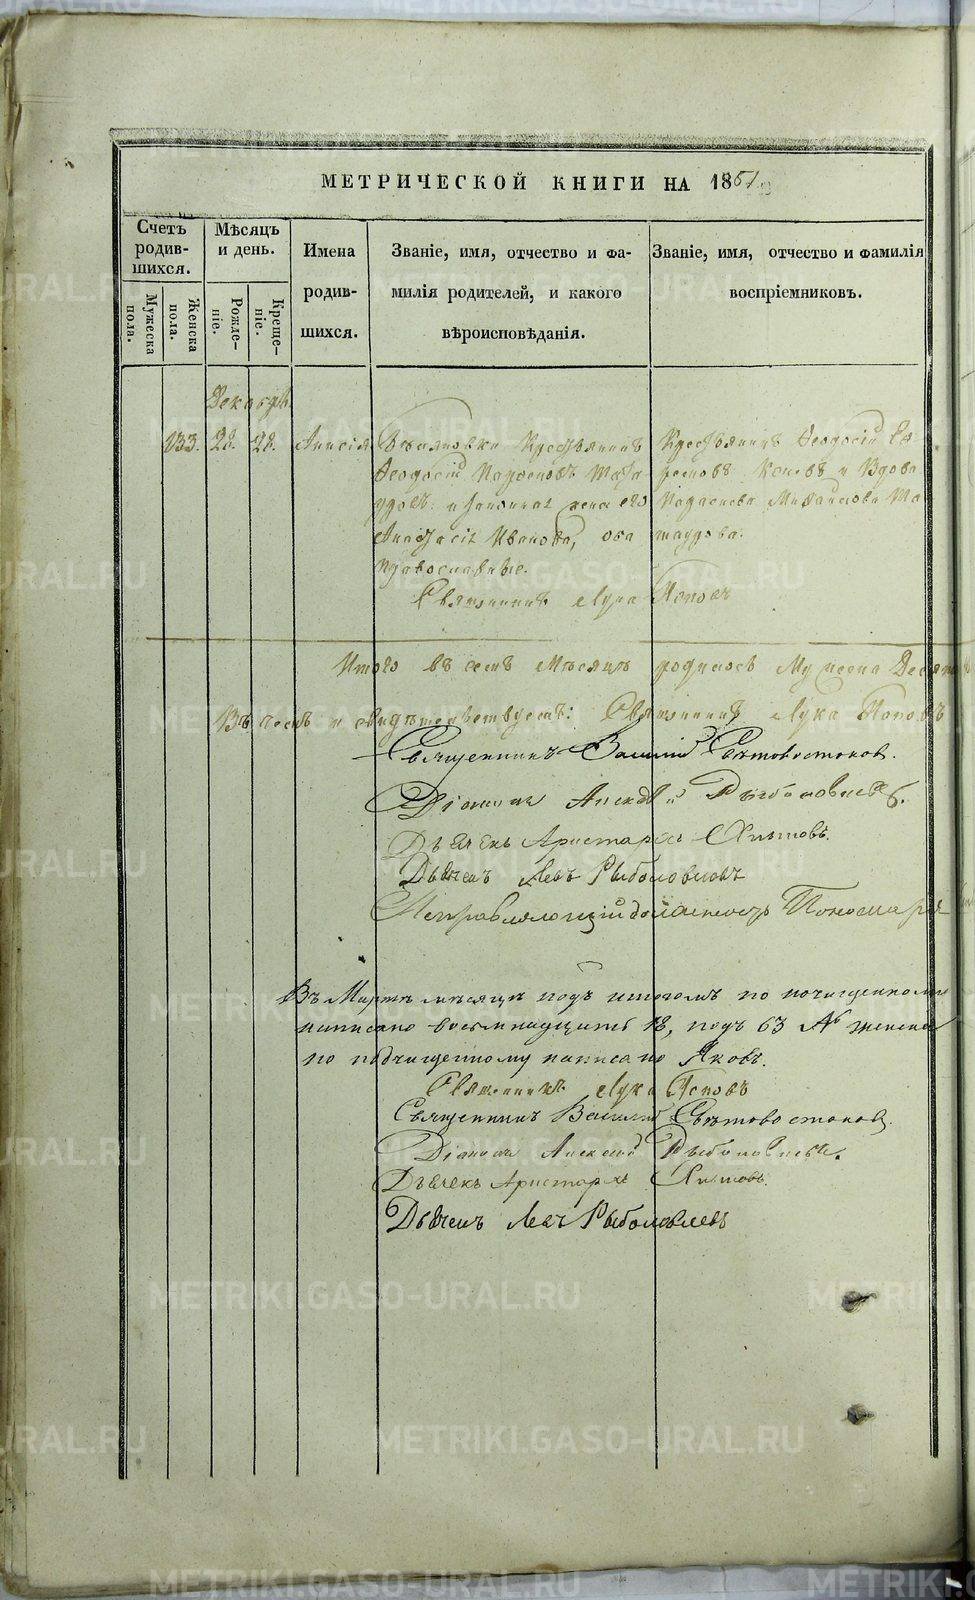 МЕТРИЧЕСКОЙ КНИГИ НА 1861
Счетъ родив-шихся.
Мужеска пола.
Женска пола.
Мѣсяцъ и день.
Рожде-ніе.
Креще-ніе.
Имена
родив-
шихся.
Званіе, имя, отчество и фа-
милія родителей, и какого
вѣроисповѣданія.
Званіе, имя, отчество и фамилія
воспріемниковъ.
Декабрь
133. 28. 28. Анисія
Крестьянинъ
Феодосій
и законная жена его
Анастасія Иванова, оба
православные.
Крестьянинъ Феодосій
и Вдова
Михайлова
Священникъ Лука Поповъ
Итого въ семъ мѣсяцѣ родилось Мужеска
Въ чемъ и свидѣтельствуемъ: Священникъ Лука Поповъ
Священникъ Василій Свѣтовостоковъ.
Діаконъ Алексѣй Рыболовлевъ.
Дьячекъ Аристархъ Хлыновъ.
Дьячекъ Левъ Рыболовлевъ
Исправляющій должность Пономаря
Въ Мартѣ мѣсяцѣ подъ итогомъ по почищенному
написано восемнадцать 18, подъ 63 № женска
по подчищенному написано Яковъ.
Священникъ Лука Поповъ
Священникъ Василій Свѣтовостоковъ.
Діаконъ Алексѣй Рыболовлевъ.
Дьячекъ Аристархъ Хлыновъ.
Дьячекъ Левъ Рыболовлевъ
METRIKI.GASO-URAL.RU